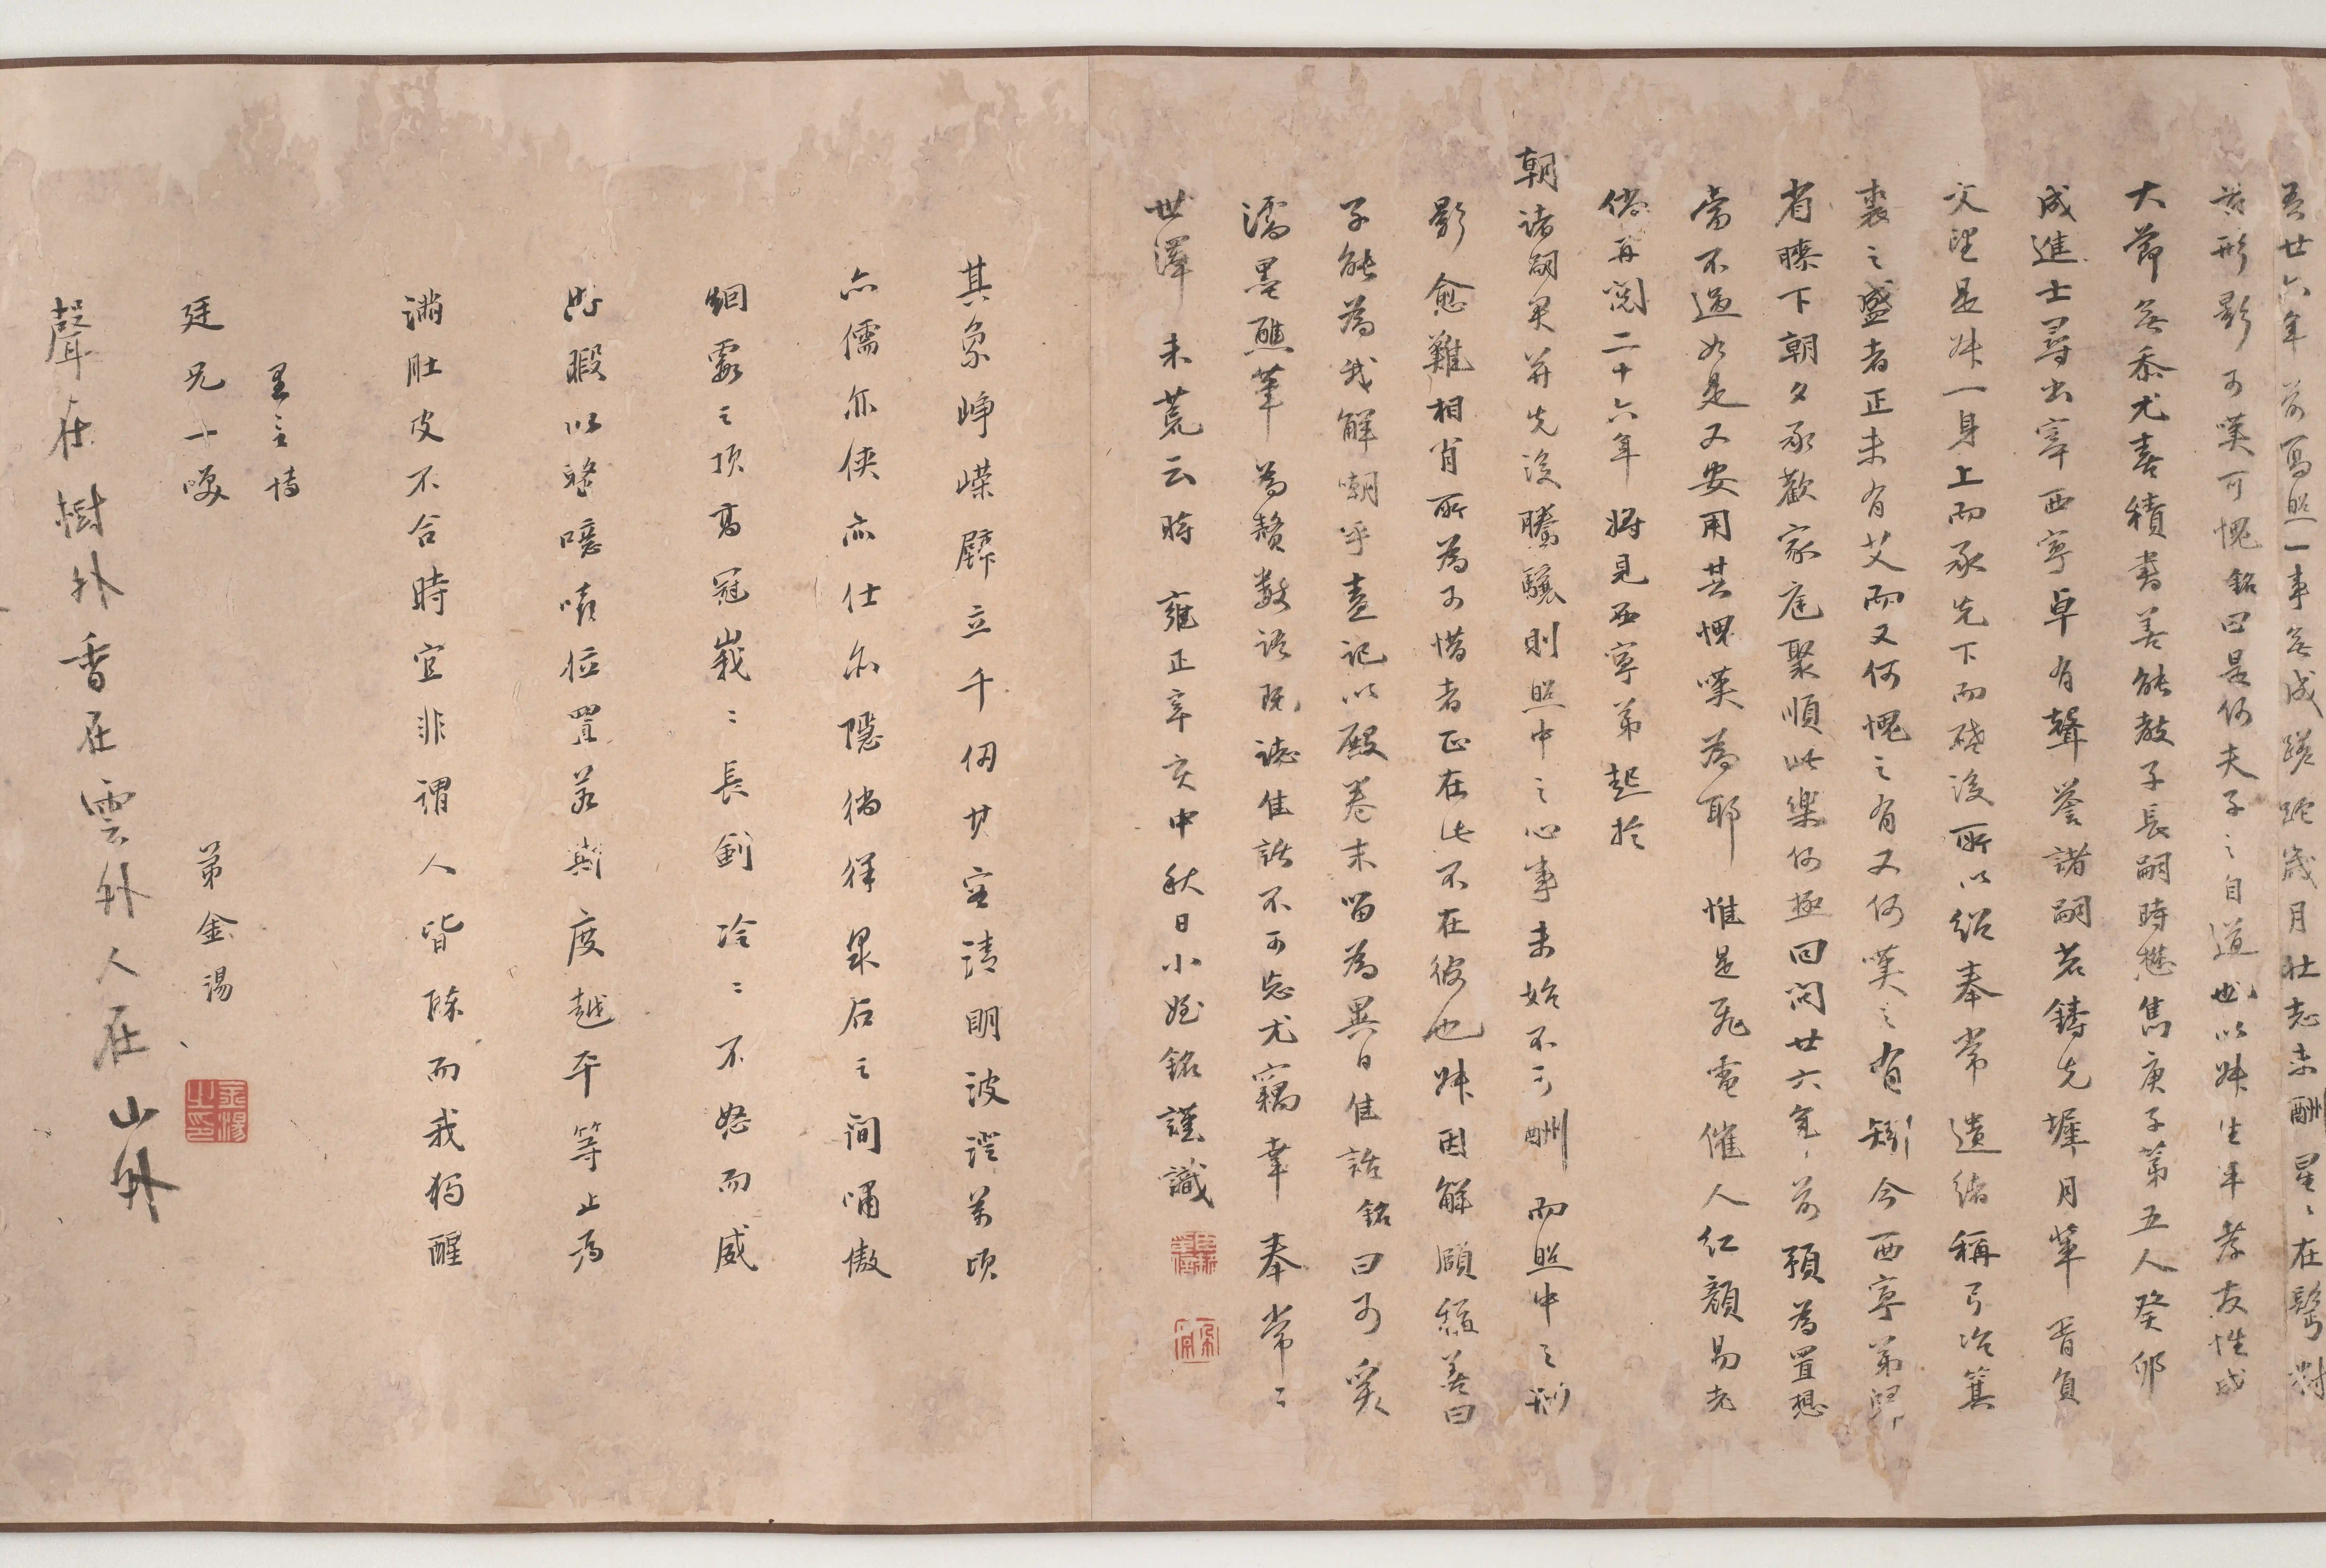 吾廿六年前寫照一事無成蹉跎歲月壯志未酬星星在鬢對
茲形影可嘆可愧銘曰是何夫子之自道也以妹生平孝友性成
大節無忝尤喜積書善能教子長嗣時懋雋庚子第五人癸卯
成進士尋出宰西寧卓有聲譽諸嗣君鑄先墀月輩胥負
文望是妹一身上而承先下而啓後所以紹奉常遺緒稱弓冶箕
裘之盛者正未有艾而又何愧之有又何嘆之有矧今西寧弟歸
省膝下朝夕承歡家庭聚順此樂何極回問廿六年前預為置想
當不過如是又安用其愧嘆為耶惟是飛電催人紅顏易老
倘再閱二十六年將見西寧弟起於
朝諸嗣君并先後騰驤則照中之心事未始不可酬而照中之形
影愈難相肖所為可惜者正在此不在彼也妹因解頤稱善曰
子能為我解嘲乎盍記以殿卷末留為異日佳話銘曰可爰
濡墨蘸筆為贅數語既誌佳話不可忘尤竊幸奉常之
世澤未荒云時雍正辛亥中秋日小姪銘謹識
其象崢嶸壁立千仞其容清明波澄萬頃
亦儒亦俠亦仕亦隱徜徉泉石之間嘯傲
烟霞之頂高冠峩峩長劍冷冷不怒而威
好暇以整噫嘻位置若斯度越平等止為
滿肚皮不合時宜非謂人皆醉而我獨醒
廷兄一噱
弟金湯
金湯之印
聲在樹外香在雲外人在山外